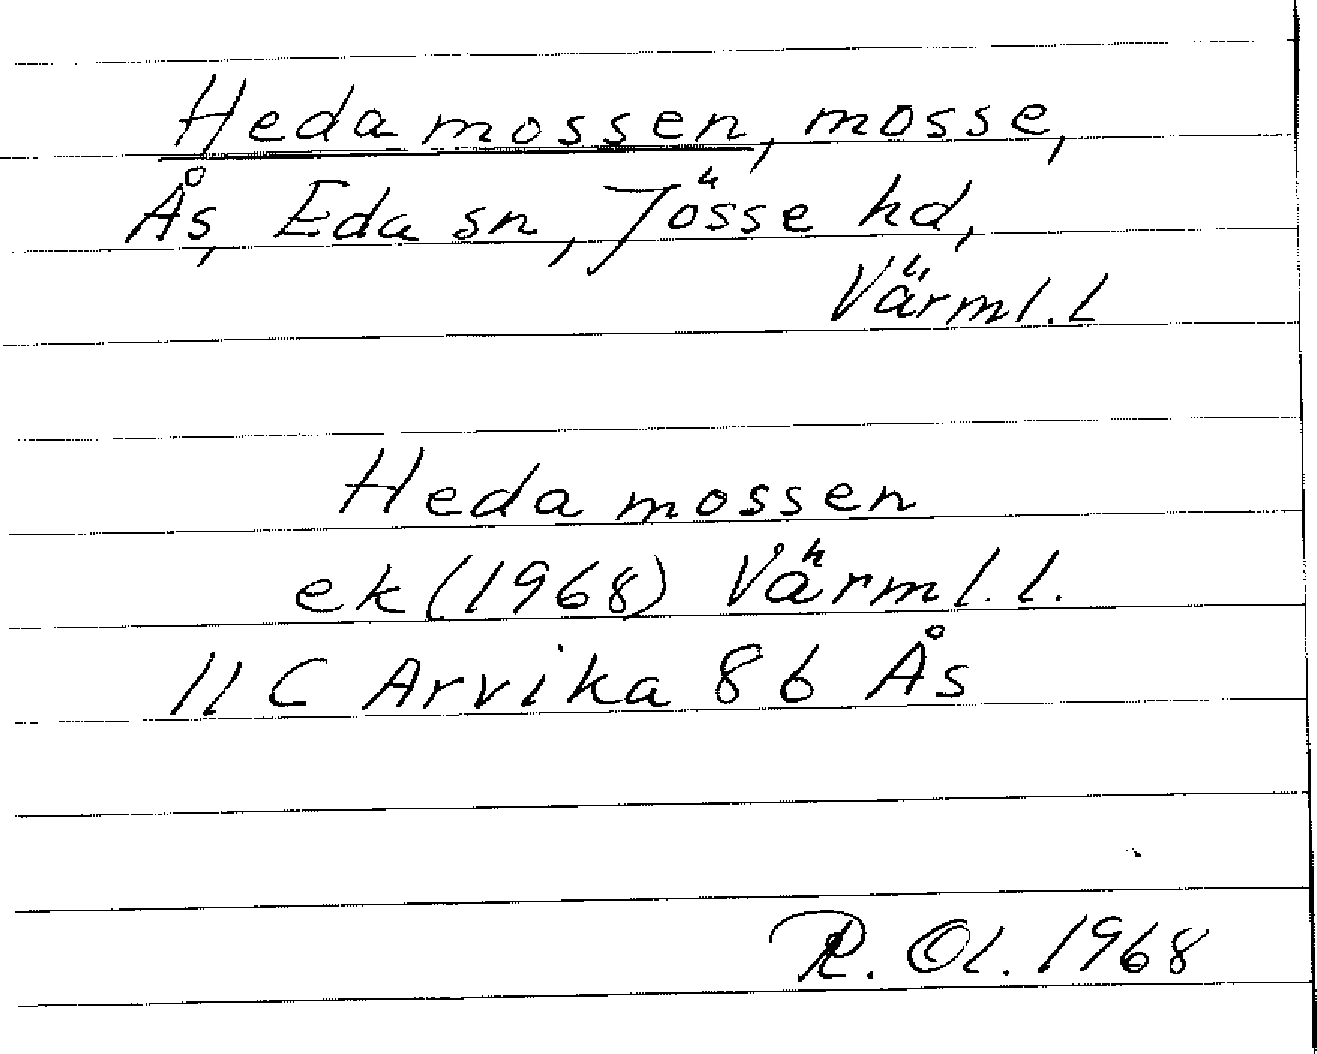 Hedamossen, mosse,
Ås, Eda sn, Jösse hd,
Värml. l
Hedamossen
ek (1968) Värml. l.
11 C Arvika 8 b Ås
R. Ol. 1968